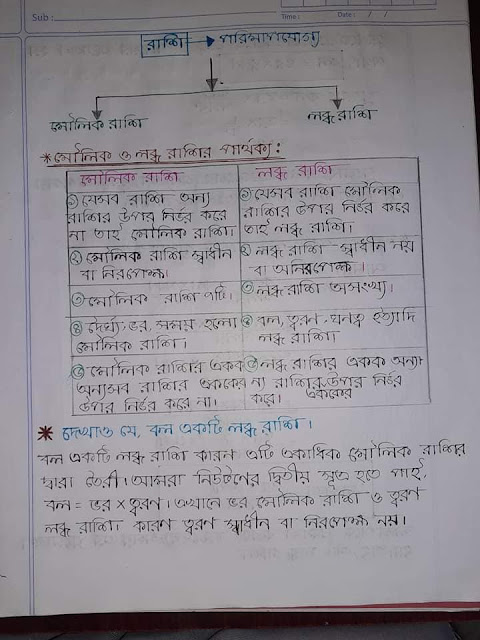 Sub :
Time :
Date : / /
রাশি → পরিমাপযোগ্য
মৌলিক রাশি
লব্ধ রাশি
*মৌলিক ও লব্ধ রাশির পার্থক্য:
মৌলিক রাশি
লব্ধ রাশি
① যেসব রাশি অন্য
রাশির উপর নির্ভর করে
না তাই মৌলিক রাশি।
① যেসব রাশি মৌলিক
রাশির উপর নির্ভর করে
তাই লব্ধ রাশি।
② মৌলিক রাশি স্বাধীন
বা নিরপেক্ষ।
② লব্ধ রাশি স্বাধীন নয়
বা অনিরপেক্ষ।
③ মৌলিক রাশি ৭টি।
③ লব্ধ রাশি অসংখ্য।
④ দৈর্ঘ্য, ভর, সময় হলো
মৌলিক রাশি।
④ বল, ত্বরণ, ঘনত্ব ইত্যাদি
লব্ধ রাশি।
⑤ মৌলিক রাশির একক
অন্যসব রাশির এককের
উপর নির্ভর করে না।
⑤ লব্ধ রাশির একক অন্যা
ন্য রাশির এককের উপর নির্ভর
করে।
* দেখাও যে, বল একটি লব্ধ রাশি।
বল একটি লব্ধ রাশি কারণ এটি একাধিক মৌলিক রাশির
দ্বারা তৈরী। আমরা নিউটনের দ্বিতীয় সূত্র হতে পাই,
বল = ভর × ত্বরণ। এখানে ভর, মৌলিক রাশি ও ত্বরণ
লব্ধ রাশি। কারণ ত্বরণ স্বাধীন বা নিরপেক্ষ নয়।